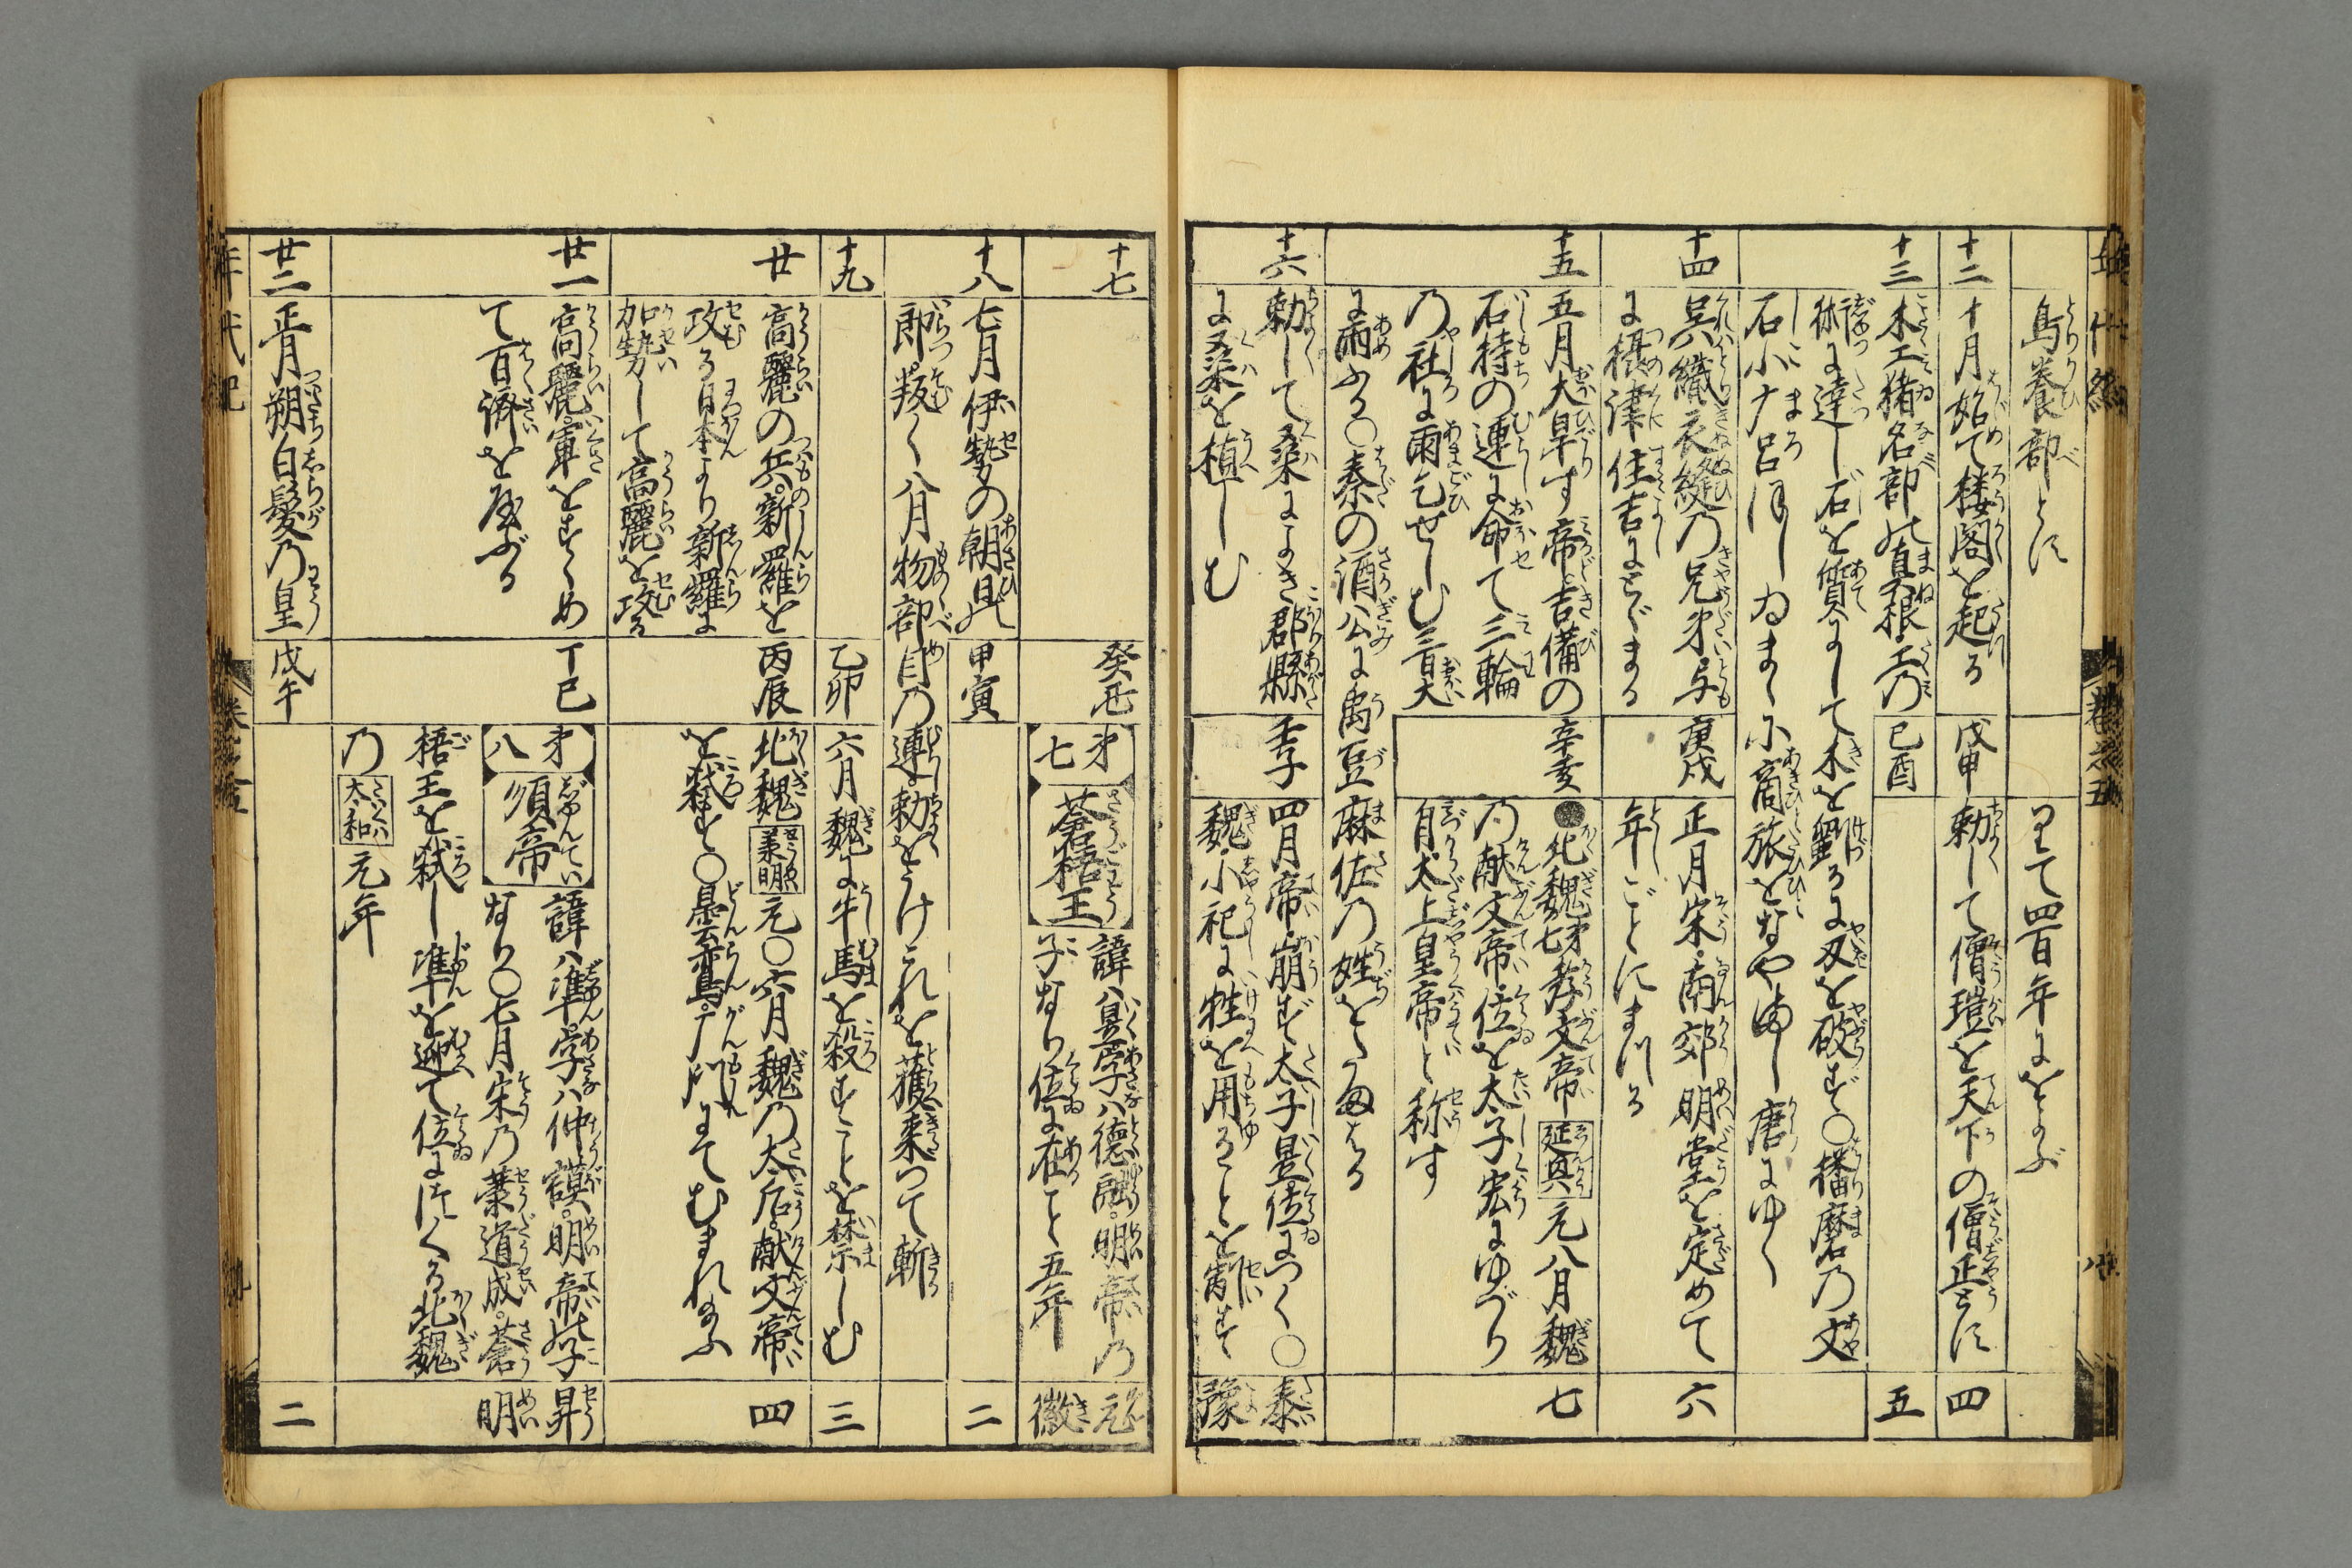 鳥養部とす
りて四百年におよぶ
十二
十月始て楼閣を起る
戊申
勅して僧瑾を天下の僧正とす
四
十三
木工猪名部の真根工の
己酉
五
術に達し石を質にして木を斲るに刄を破ず〇播磨の文
石小广呂
小商旅をなやまし唐にゆく
十四
呉織衣縫の兄弟与
庚戌
正月宋南郊明堂を定めて
六
に摂津住吉にとゞまる
年ごとにまつる
十五
五月大旱す帝吉備の
辛亥
●北魏第七孝文帝延興元八月魏
七
石持の連に命て三輪
の献文帝位を太子宏にゆづり
の社に雨乞せしむ三日大
自太上皇帝と称す
に雨ふる〇秦の酒公に禹豆麻佐の姓をたまはる
十六
勅して桑によき郡縣
壬子
四月帝崩ず太子昱位につく〇
泰
に桑を植しむ
魏小祀に牲を用ることを
豫
十七
癸丑
第七
蒼梧王
諱ハ昱字ハ徳融明帝の
元
子なり位に在こと五年
徽
十八
七月伊勢の朝日の
甲寅
二
郎叛く八月物部目の連勅をうけこれを獲来つて斬
十九
乙卯
六月魏に牛馬を殺すことを禁しむ
三
廿
高麗の兵新羅を
丙辰
北魏承明元〇六月魏の太后献文帝
四
攻る日本より新羅に
を弑す〇曇鸞广門にてむまれ給ふ
加勢して高麗を攻る
廿一
高麗軍をすゝめ
丁巳
第八
須帝
諱ハ準字ハ仲謨明帝の子
昇
て百済を破ぶる
なり〇七月宋の蕭道成蒼
明
梧王を弑し準を迎て位につくる北魏
の太和元年
廿二
正月朔白髪の皇
戊午
二
年代記